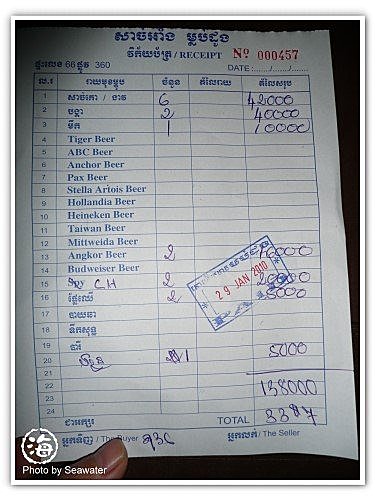 សាច់អាំង ម្លប់ដូង
វិក័យប័ត្រ / RECEIPT Nº 000457
ផ្ទះលេខ 66 ផ្លូវ 360 DATE : ....../....../......
ល.រ រាយមុខម្ហូប ចំនួន តំលៃរាយ តំលៃសរុប
1 សាច់គោ / 6 42000
2 បង្គា 2 40000
3 មឹក 1 10000
4 Tiger Beer
5 ABC Beer
6 Anchor Beer
7 Pax Beer
8 Stella Artois Beer
9 Hollandia Beer
10 Heineken Beer
11 Taiwan Beer
12 Mittweida Beer
13 Angkor Beer 2
14 Budweiser Beer
15 CH 2
16 ផ្លែឈើ 2
17 បាយឆា
18 ទឹកសុទ្ធ
19 បារី
20 1 5000
21
22 138000
23
24 TOTAL
29 JAN 2010
អ្នកទិញ / The Buyer អ្នកលក់ / The Seller
海
Photo by Seawater